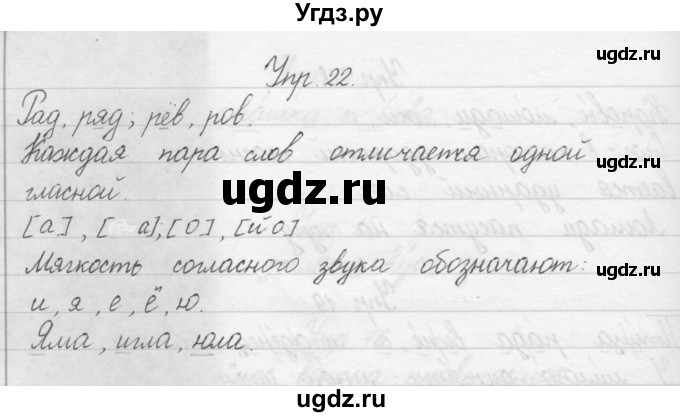 Угдз.ру
ugdz.ru
Упр. 22.
ugdz.ru
Рад, ряд; рёв, ров.
Каждая пара слов отличается одной
ugdz.ru
гласной.
ugdz.ru
[а], [ а]; [о], [йо]
Мягкость согласного звука обозначают:
ugdz.ru
и, я, е, ё, ю.
Яма, игла, юла.
ugdz.ru
ugdz.ru